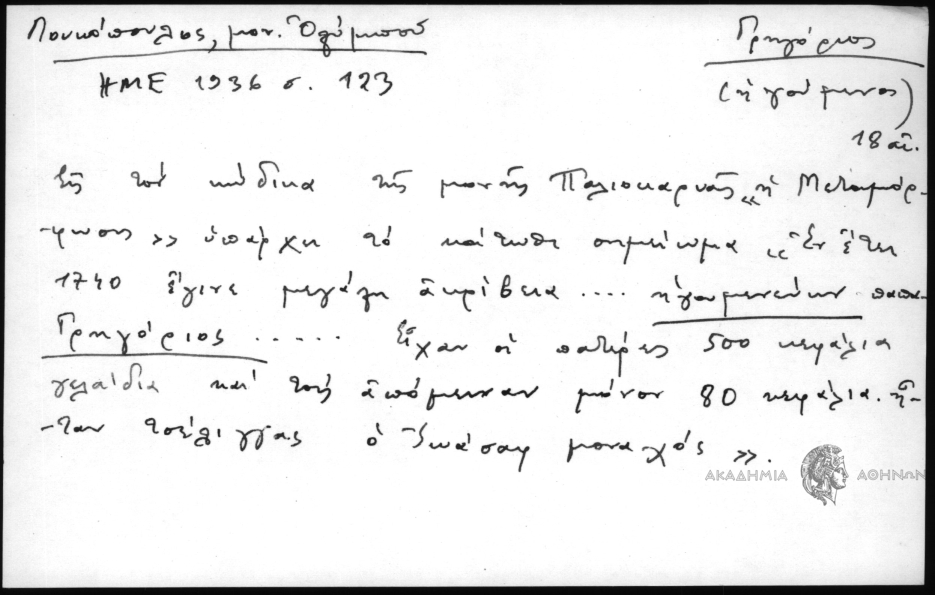 Λουκόπουλος, μον. Ὀλύμπου
ΗΜΕ 1936 σ. 123
Γρηγόριος
(ἡγούμενος)
18 αἰ.
Εἰς τὸν κώδικα τῆς μονῆς Παλιοκαρυᾶς «ἡ Μεταμόρ-
-φωσις» ὑπάρχει τὸ κάτωθι σημείωμα «Ἐν ἔτει
1740 ἔγινε μεγάλη ἀκρίβεια .... ἡγουμενεύων παπα-
Γρηγόριος ..... Εἶχαν οἱ πατέρες 500 κεφάλια
γελάδια καὶ τοὺς ἀπόμειναν μόνον 80 κεφάλια. ἦ-
-ταν τσέλιγγας ὁ Ἰωάσαφ μοναχός».
ΑΚΑΔΗΜΙΑ ΑΘΗΝΩΝ